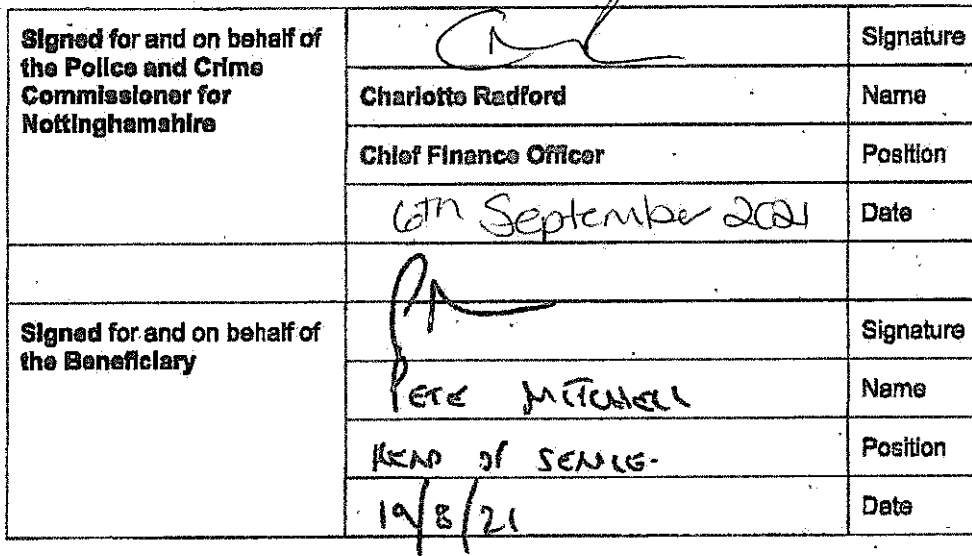 Signed for and on behalf of
the Police and Crime
Commissioner for
Nottinghamshire
Signature
Charlotte Radford
Name
Chief Finance Officer
Position
6th September 2021
Date
Signed for and on behalf of
the Beneficiary
Signature
PETE MITCHELL
Name
HEAD OF SERVICE.
Position
19/8/21
Date